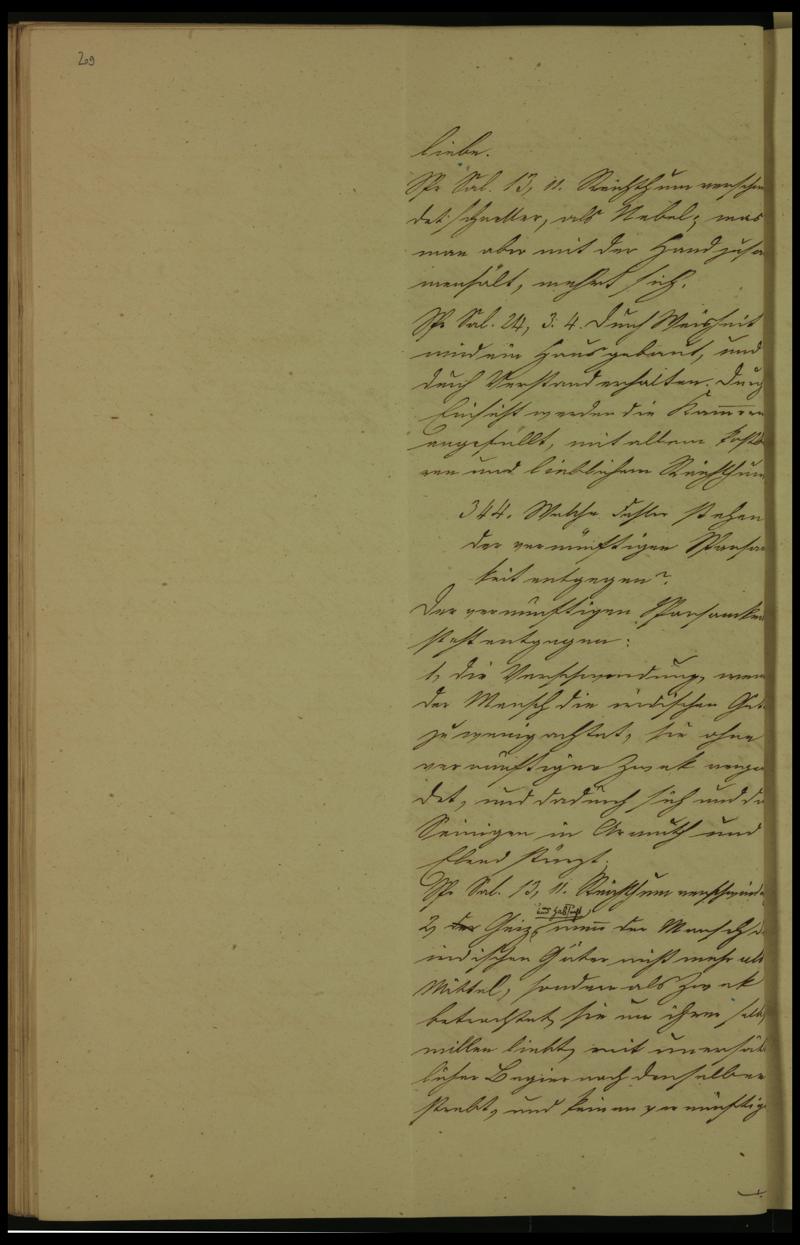 209
liebe.
Spr. Sal. 13, 11. Reichthum verschwin
det schneller, als Nebel; was
man aber mit der Hand zusa
menhält, mehrt sich.
Spr. Sal. 24, 3. 4. Durch Weisheit
wird ein Haus gebaut, und
durch Verstand erhalten. Durch
Einsicht werden die Kammern
angefüllt, mit allem kostba
ren und lieblichem Reichthum
344. Welche Fehler stehen
der vernünftigen Sparsam
keit entgegen?
Der vernünftigen Sparsamkei
steht entgegen:
1, die Verschwendung, wenn
der Mensch die irdischen Güt
zu wenig achtet, sie ohne
vernünftigen Zwek vergeu
det, und dadurch sich und di
Seinigen in Armuth und
Elend stürzt.
Spr. Sal. 13, 11. Reichthum verschwinde
und Habsucht
2, der Geiz, wenn der Mensch d
irdischen Güter nicht mehr als
Mittel, sondern als Zwek
betrachtet, sie um ihrer selbst
willen liebt, mit unersät
licher Begier nach denselben
strebt, und keinen vernünftig